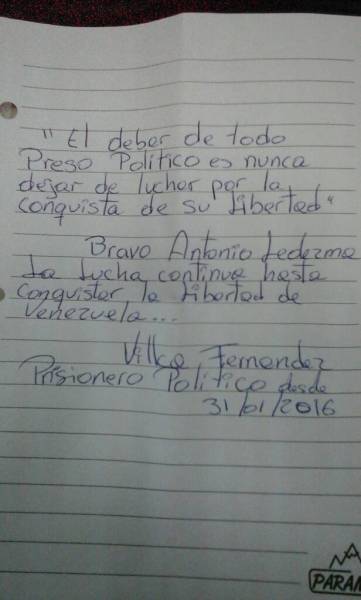 "El deber de todo
Preso Político es nunca
dejar de luchar por la
conquista de su Libertad"
Bravo Antonio Ledezma
La Lucha continua hasta
Conquistar la Libertad de
Venezuela...
Villca Fernandez
Prisionero Político desde
31/01/2016
PARAM